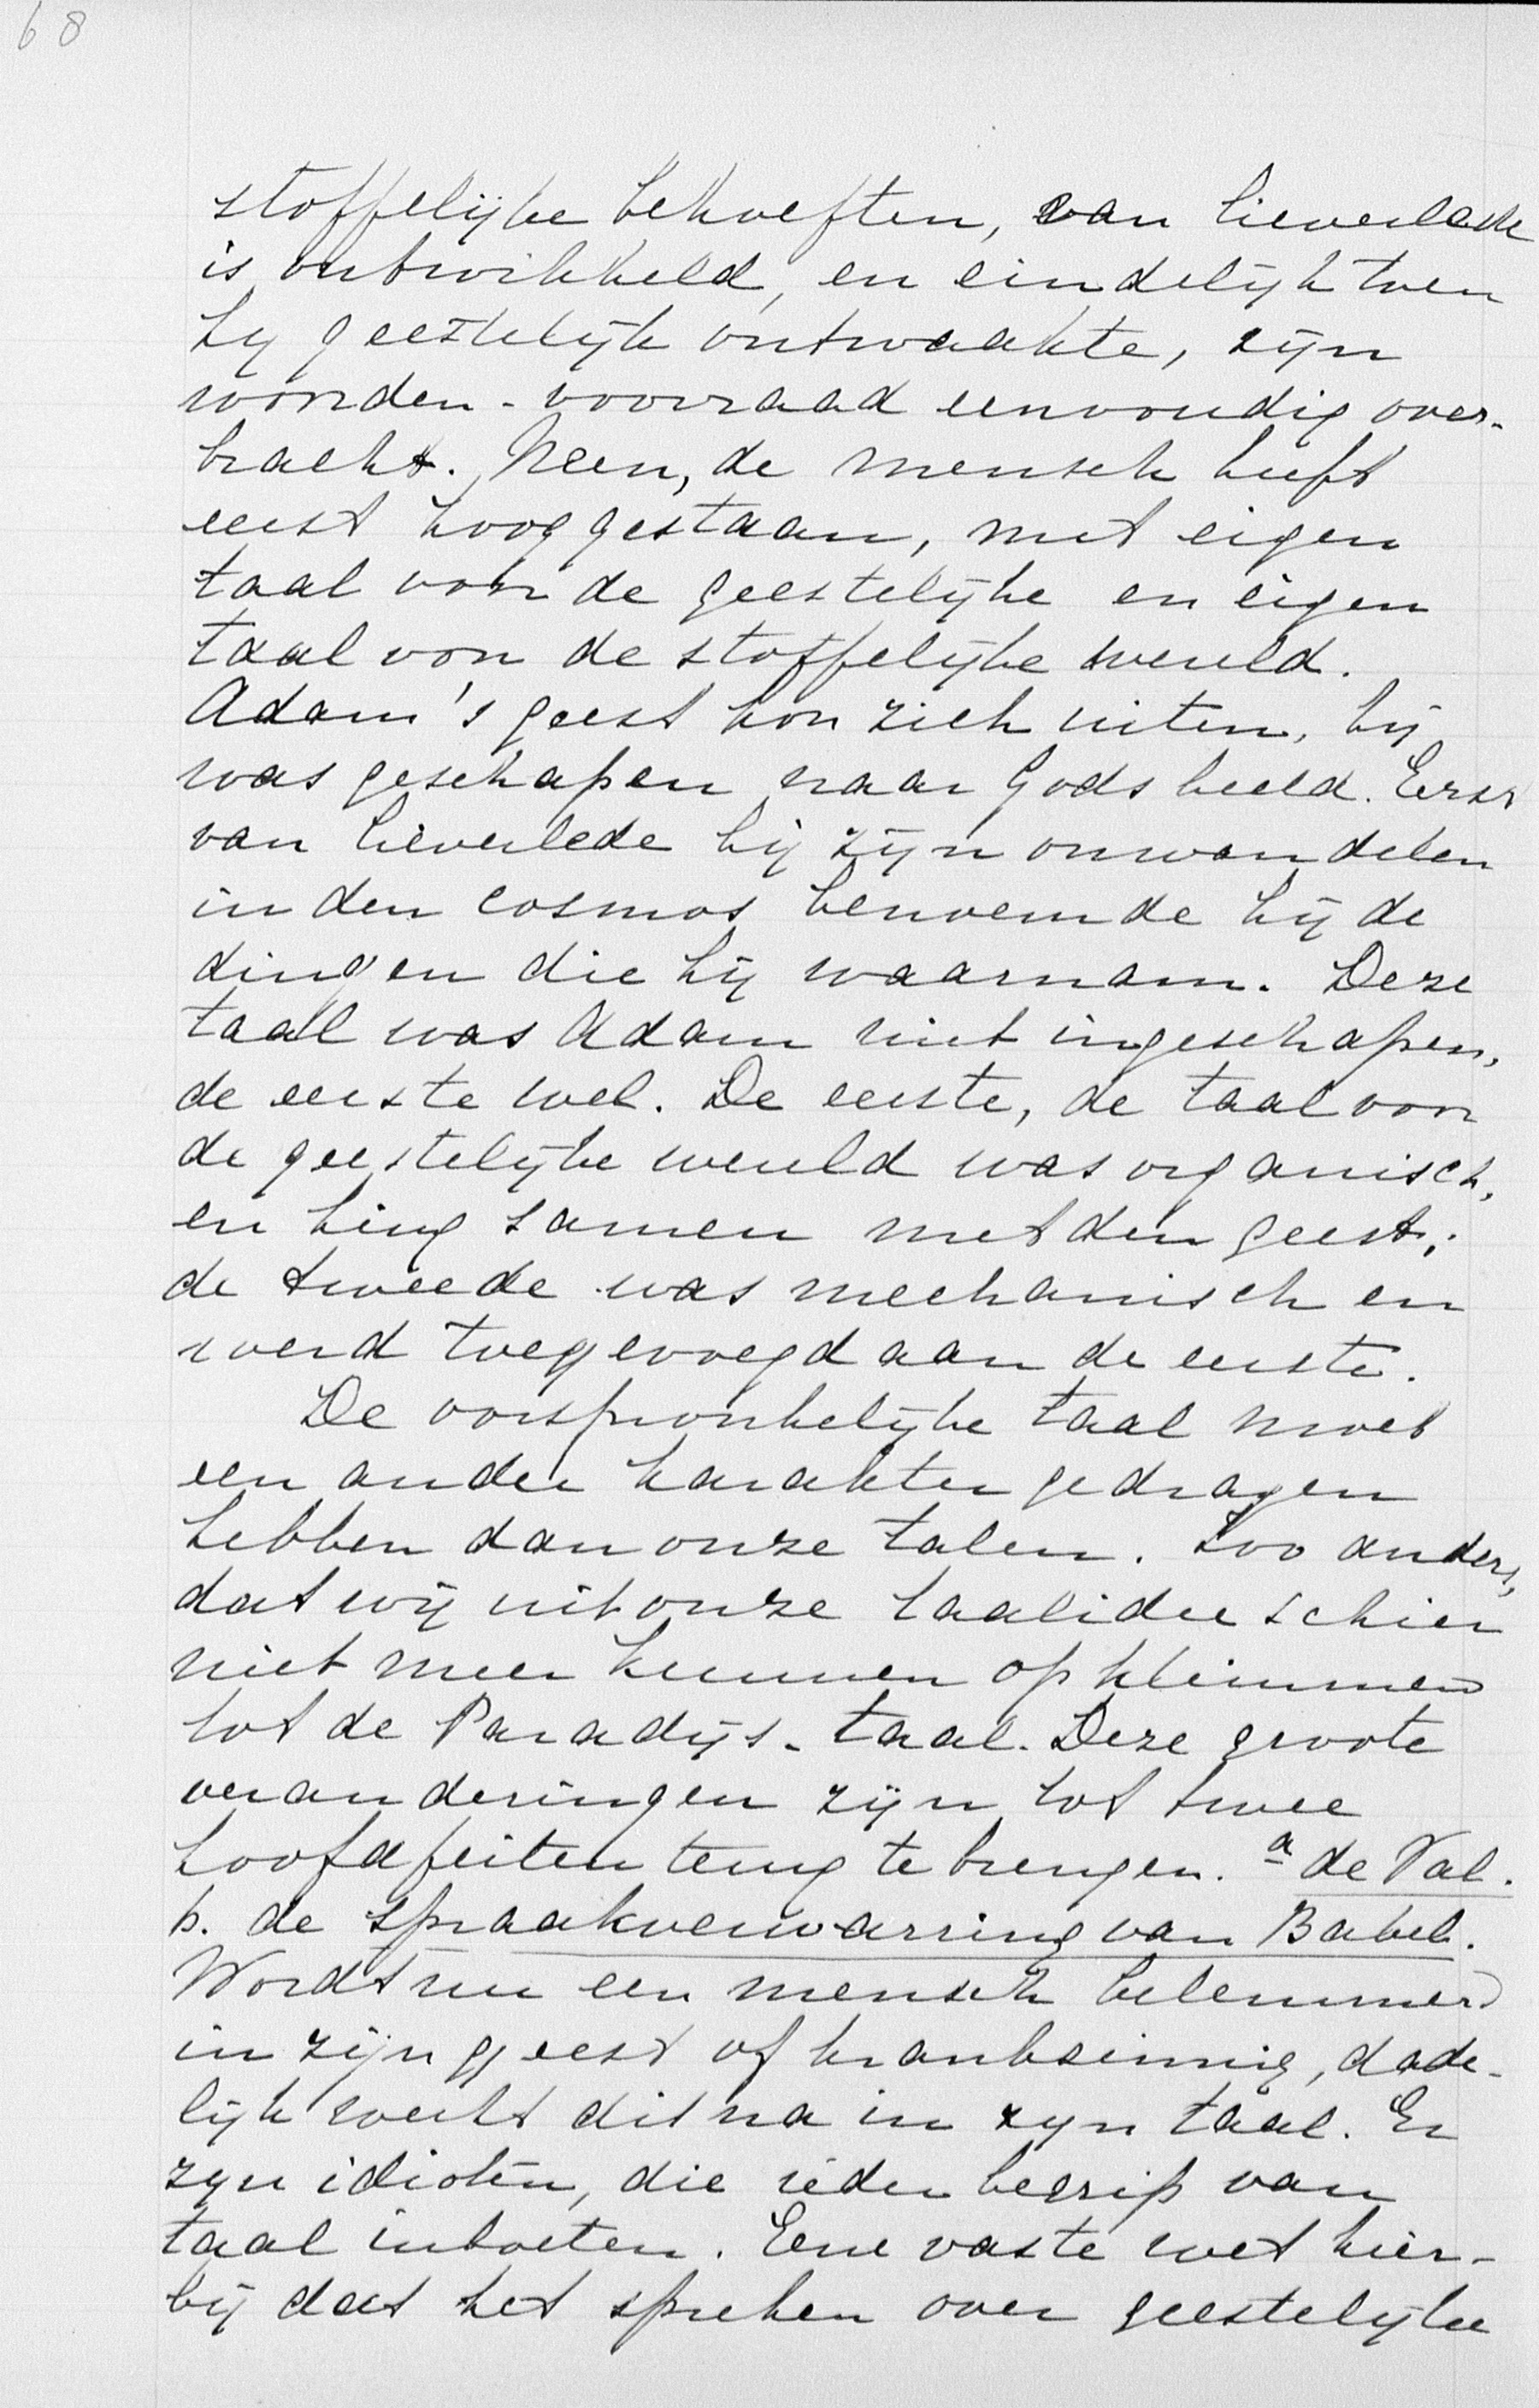 68
stoffelijke behoeften, van lieverlede
is ontwikkeld, en eindelijk toen
hij geestelijk ontwaakte, zijn
woorden-voorraad eenvoudig over-
bracht. Neen, de mensch heeft
eerst hoog gestaan, met eigen
taal voor de geestelijke en eigen
taal voor de stoffelijke wereld.
Adam's geest kon zich uiten, hij
was geschapen naar Gods beeld. Eerst
van lieverlede bij zijn omwandelen
in den cosmos benoemde hij de
dingen die hij waarnam. Deze
taal was Adam niet ingeschapen,
de eerste wel. De eerste, de taal voor
de geestelijke wereld was organisch,
en hing samen met den geest;
de tweede was mechanisch en
werd toegevoegd aan de eerste.
De oorspronkelijke taal moet
een ander karakter gedragen
hebben dan onze talen. Zoo anders,
dat wij uit onze taalidee schier
niet meer kunnen opklimmen
tot de Paradijs-taal. Deze groote
veranderingen zijn tot twee
hoofdfeiten terug te brengen. a de Val.
b. de spraakverwarring van Babel.
Wordt nu een mensch belemmerd
in zijn geest of krankzinnig, dade-
lijk werkt dit na in zijn taal. Er
zijn idioten, die ieder begrip van
taal inboeten. Eene vaste wet hier-
bij dat het spreken over geestelijke